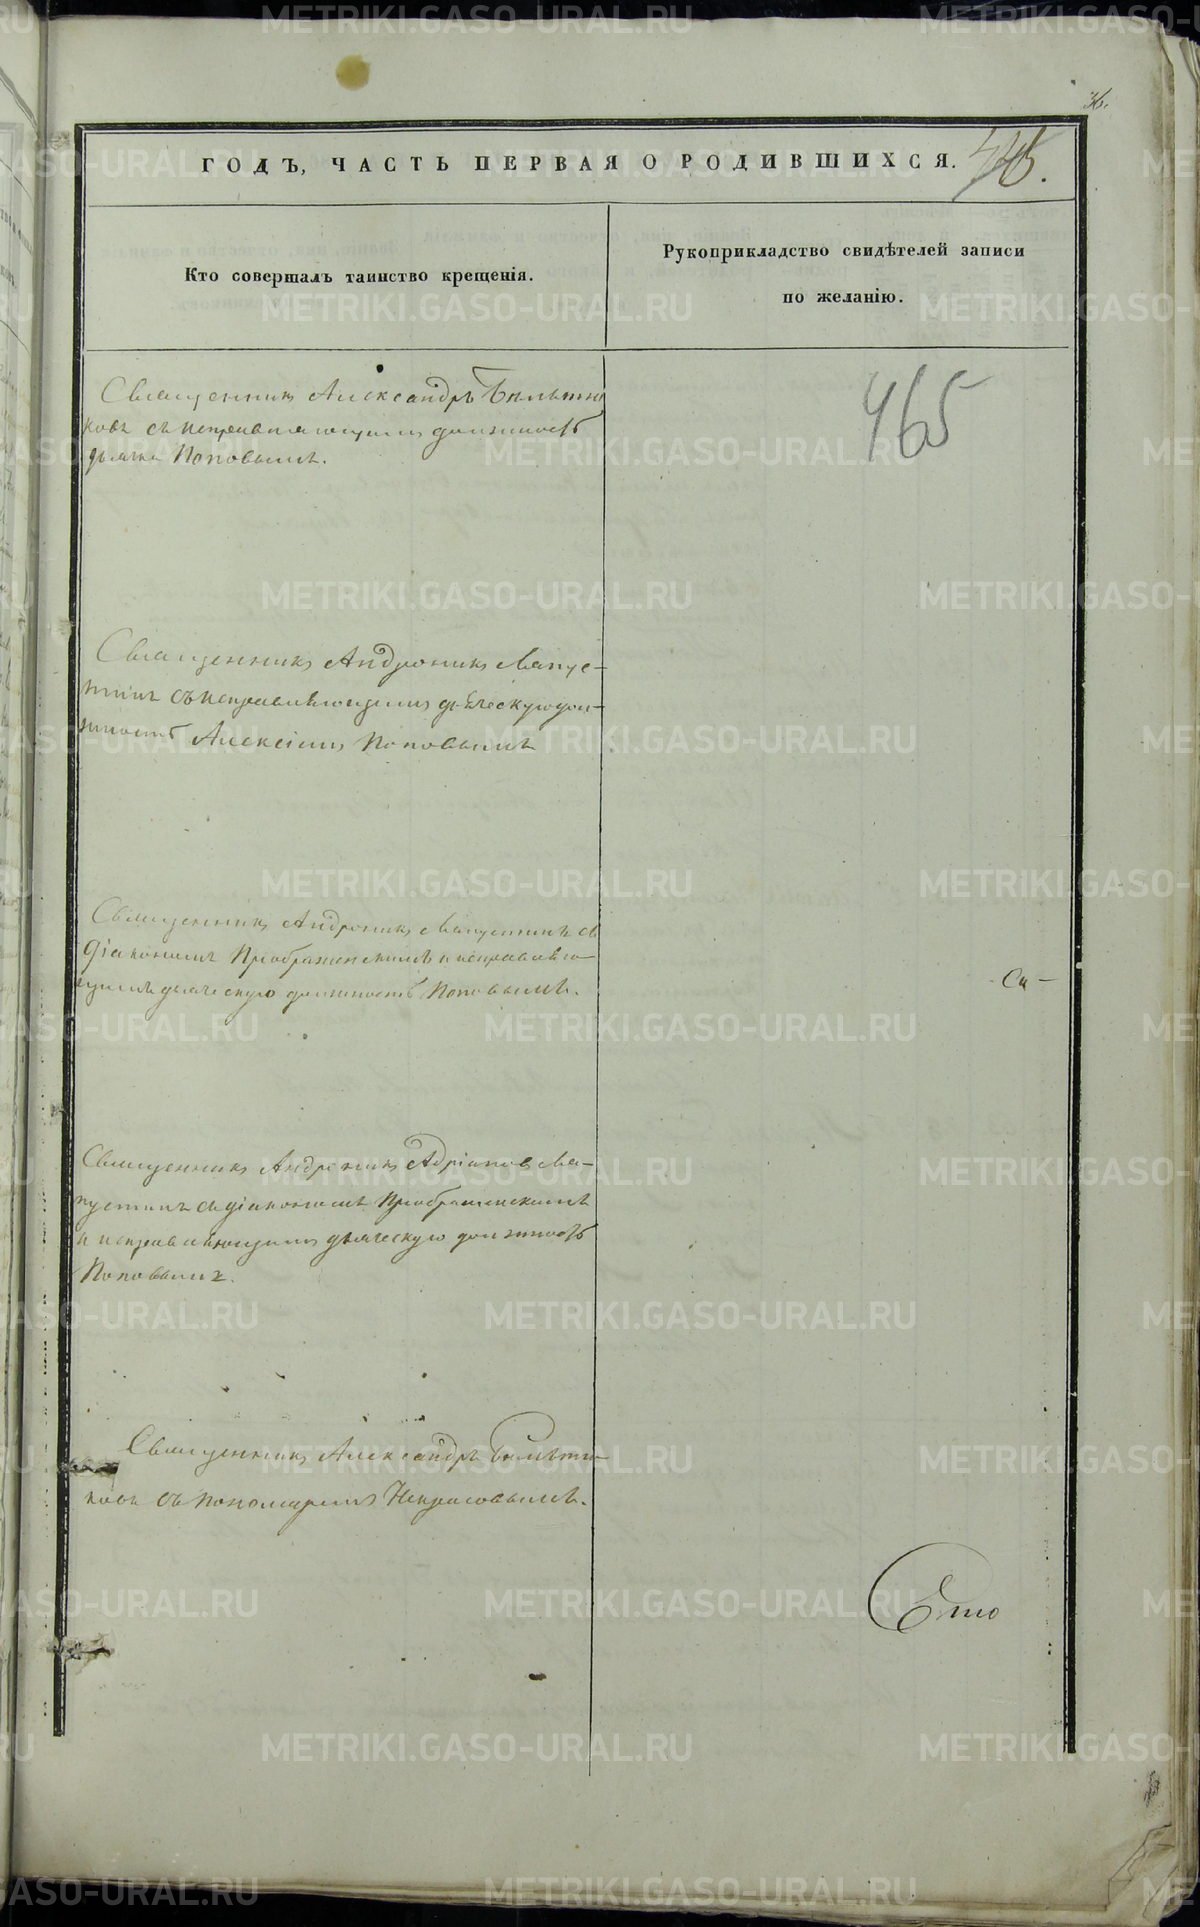 36.
ГОДЪ, ЧАСТЬ ПЕРВАЯ О РОДИВШИХСЯ.
Кто совершалъ таинство крещенія.
Рукоприкладство свидѣтелей записи
по желанію.
465
Священникъ Александръ Бѣльтю
ковъ съ исправляющимъ должность
дьячка Поповымъ.
Священникъ Андроникъ Лапус-
тинъ съ исправляющимъ дьяческую дол-
жность Алексіемъ Поповымъ
Священникъ Андроникъ Лапустинъ съ
діакономъ Преображенскимъ и исправляю-
щимъ дьяческую должность Поповымъ.
Священникъ Андроникъ Адріановъ Ла-
пустинъ съ діакономъ Преображенскимъ
и исправляющимъ дьяческую должность
Поповымъ.
Священникъ Александръ Бѣльтю-
ковъ съ пономаремъ Некрасовымъ.
METRIKI.GASO-URAL.RU